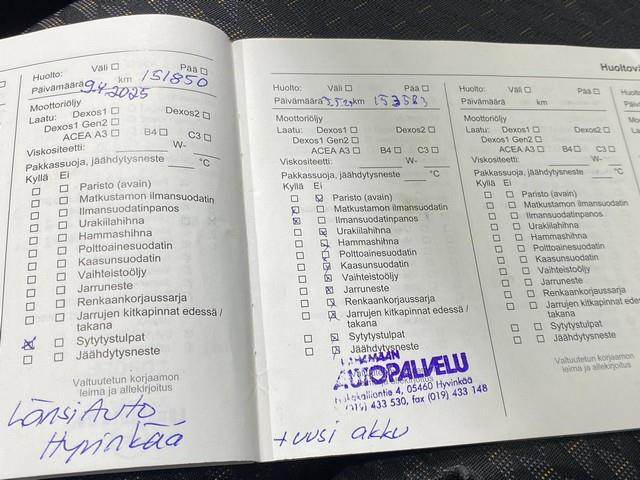 Huolto: Väli Pää
Päivämäärä 9.4.2025 km 151850
Moottoriöljy
Laatu: Dexos1 Dexos2
Dexos1 Gen2
ACEA A3 B4 C3
Viskositeetti: W-
Pakkassuoja, jäähdytysneste °C
Kyllä Ei
Paristo (avain)
Matkustamon ilmansuodatin
Ilmansuodatinpanos
Urakiilahihna
Hammashihna
Polttoainesuodatin
Kaasunsuodatin
Vaihteistoöljy
Jarruneste
Renkaankorjaussarja
Jarrujen kitkapinnat edessä /
takana
Sytytystulpat
Jäähdytysneste
Valtuutetun korjaamon
leima ja allekirjoitus
LänsiAuto
Hyvinkää
Huolto: Väli Pää
Päivämäärä km 153583
Moottoriöljy
Laatu: Dexos1 Dexos2
Dexos1 Gen2
ACEA A3 B4 C3
Viskositeetti: W-
Pakkassuoja, jäähdytysneste °C
Kyllä Ei
Paristo (avain)
Matkustamon ilmansuodatin
Ilmansuodatinpanos
Urakiilahihna
Hammashihna
Polttoainesuodatin
Kaasunsuodatin
Vaihteistoöljy
Jarruneste
Renkaankorjaussarja
Jarrujen kitkapinnat edessä /
takana
Sytytystulpat
Jäähdytysneste
AUTOPALVELU
05460 Hyvinkää
433 530, fax (019) 433 148
+ uusi akku
Huolto: Väli Pää
Päivämäärä km
Moottoriöljy
Laatu: Dexos1 Dexos2
Dexos1 Gen2
ACEA A3 B4 C3
Viskositeetti: W-
Pakkassuoja, jäähdytysneste °C
Kyllä Ei
Paristo (avain)
Matkustamon ilmansuodatin
Ilmansuodatinpanos
Urakiilahihna
Hammashihna
Polttoainesuodatin
Kaasunsuodatin
Vaihteistoöljy
Jarruneste
Renkaankorjaussarja
Jarrujen kitkapinnat edessä /
takana
Sytytystulpat
Jäähdytysneste
Valtuutetun korjaamon
leima ja allekirjoitus